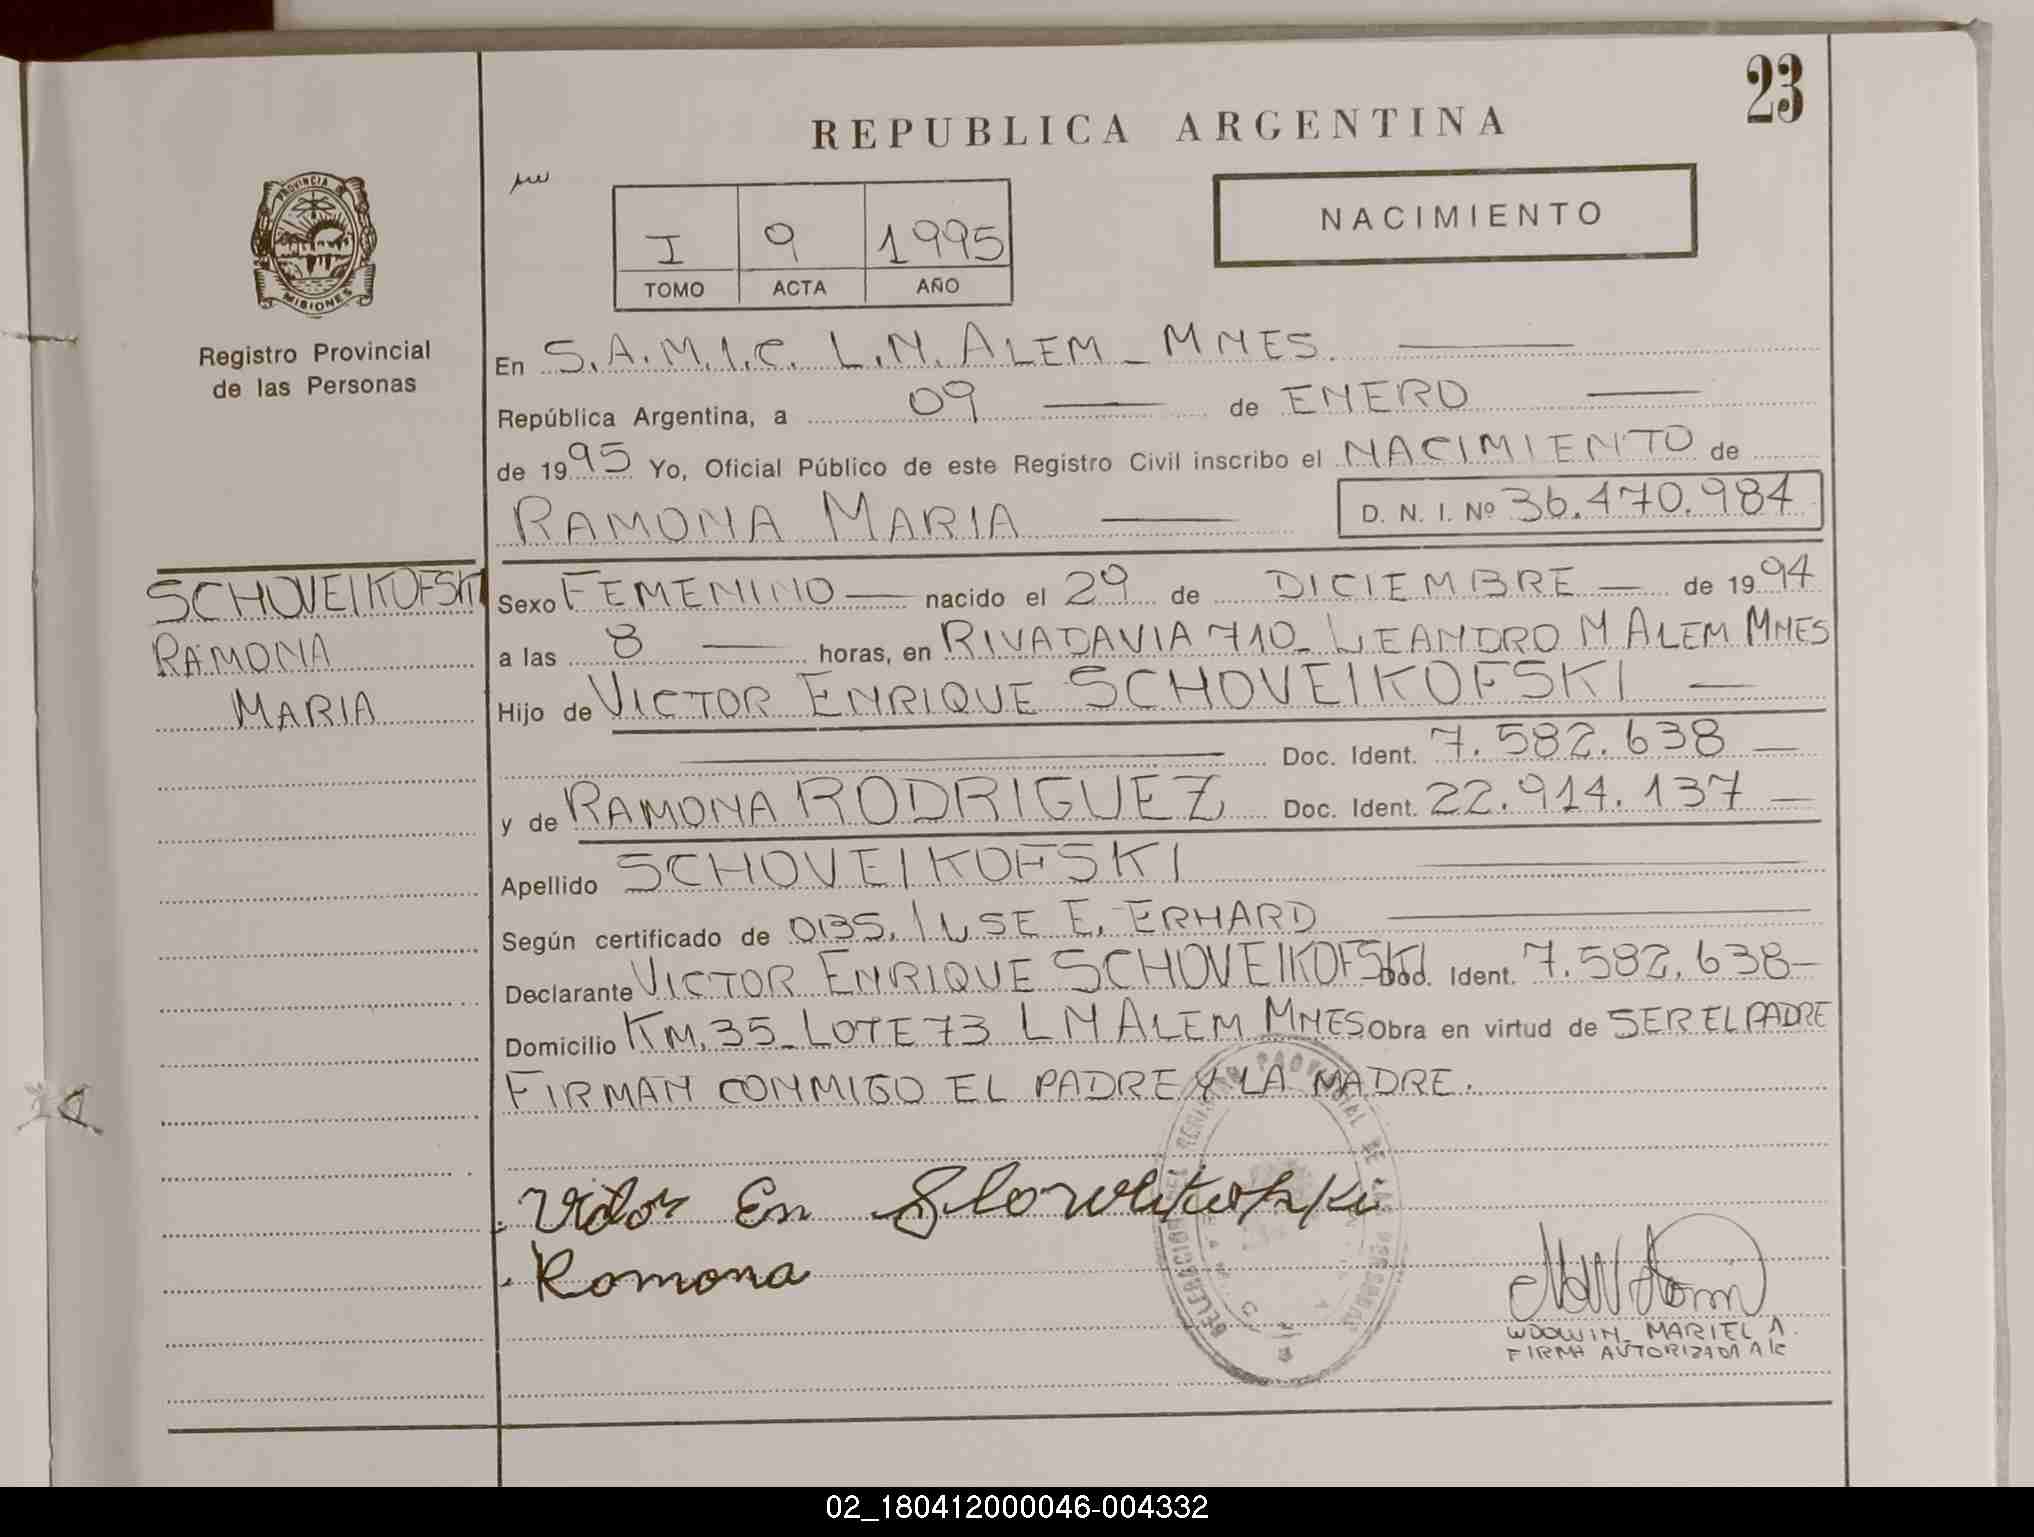 23
REPUBLICA ARGENTINA
NACIMIENTO
PROVINCIA DE
MISIONES
Registro Provincial
de las Personas
I 9 1995
TOMO ACTA AÑO
En S.A.M.I.C. L.N. ALEM - MNES.
República Argentina, a 09 de ENERO
de 1995 Yo, Oficial Público de este Registro Civil inscribo el NACIMIENTO de
RAMONA MARIA D. N. I. Nº 36.470.984
SCHOVEIKOFSKI
RAMONA
MARIA
Sexo FEMENINO nacido el 29 de DICIEMBRE de 1994
a las 8 horas, en RIVADAVIA 710 - LEANDRO N ALEM MNES
Hijo de VICTOR ENRIQUE SCHOVEIKOFSKI
Doc. Ident. 7.582.638
y de RAMONA RODRIGUEZ Doc. Ident. 22.914.137
Apellido SCHOVEIKOFSKI
Según certificado de OBS. ILSE E. ERHARD
Declarante VICTOR ENRIQUE SCHOVEIKOFSKI Doc. Ident. 7.582.638
Domicilio KM. 35 - LOTE 73 L N ALEM MNES Obra en virtud de SER EL PADRE
FIRMAN CONMIGO EL PADRE Y LA MADRE.
Victor En
Ramona
WDOWIN MARIEL A.
FIRMA AUTORIZADA A/C
02_180412000046-004332